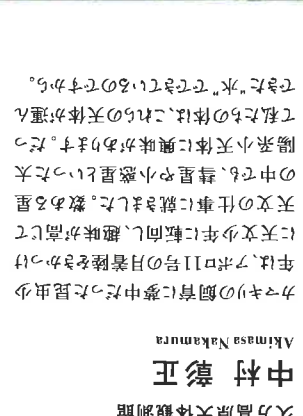 久万高原天体観測館
中村 彰正
Akimasa Nakamura
カマキリの飼育に夢中だった昆虫少
年は、アポロ11号の月着陸をきっかけ
に天文少年に転向し、趣味が高じて
天文の仕事に就きました。数ある星
の中でも、彗星や小惑星といった太
陽系小天体に興味があります。だっ
て私たちの体は、これらの天体が運ん
できた“水”でできているのですから。